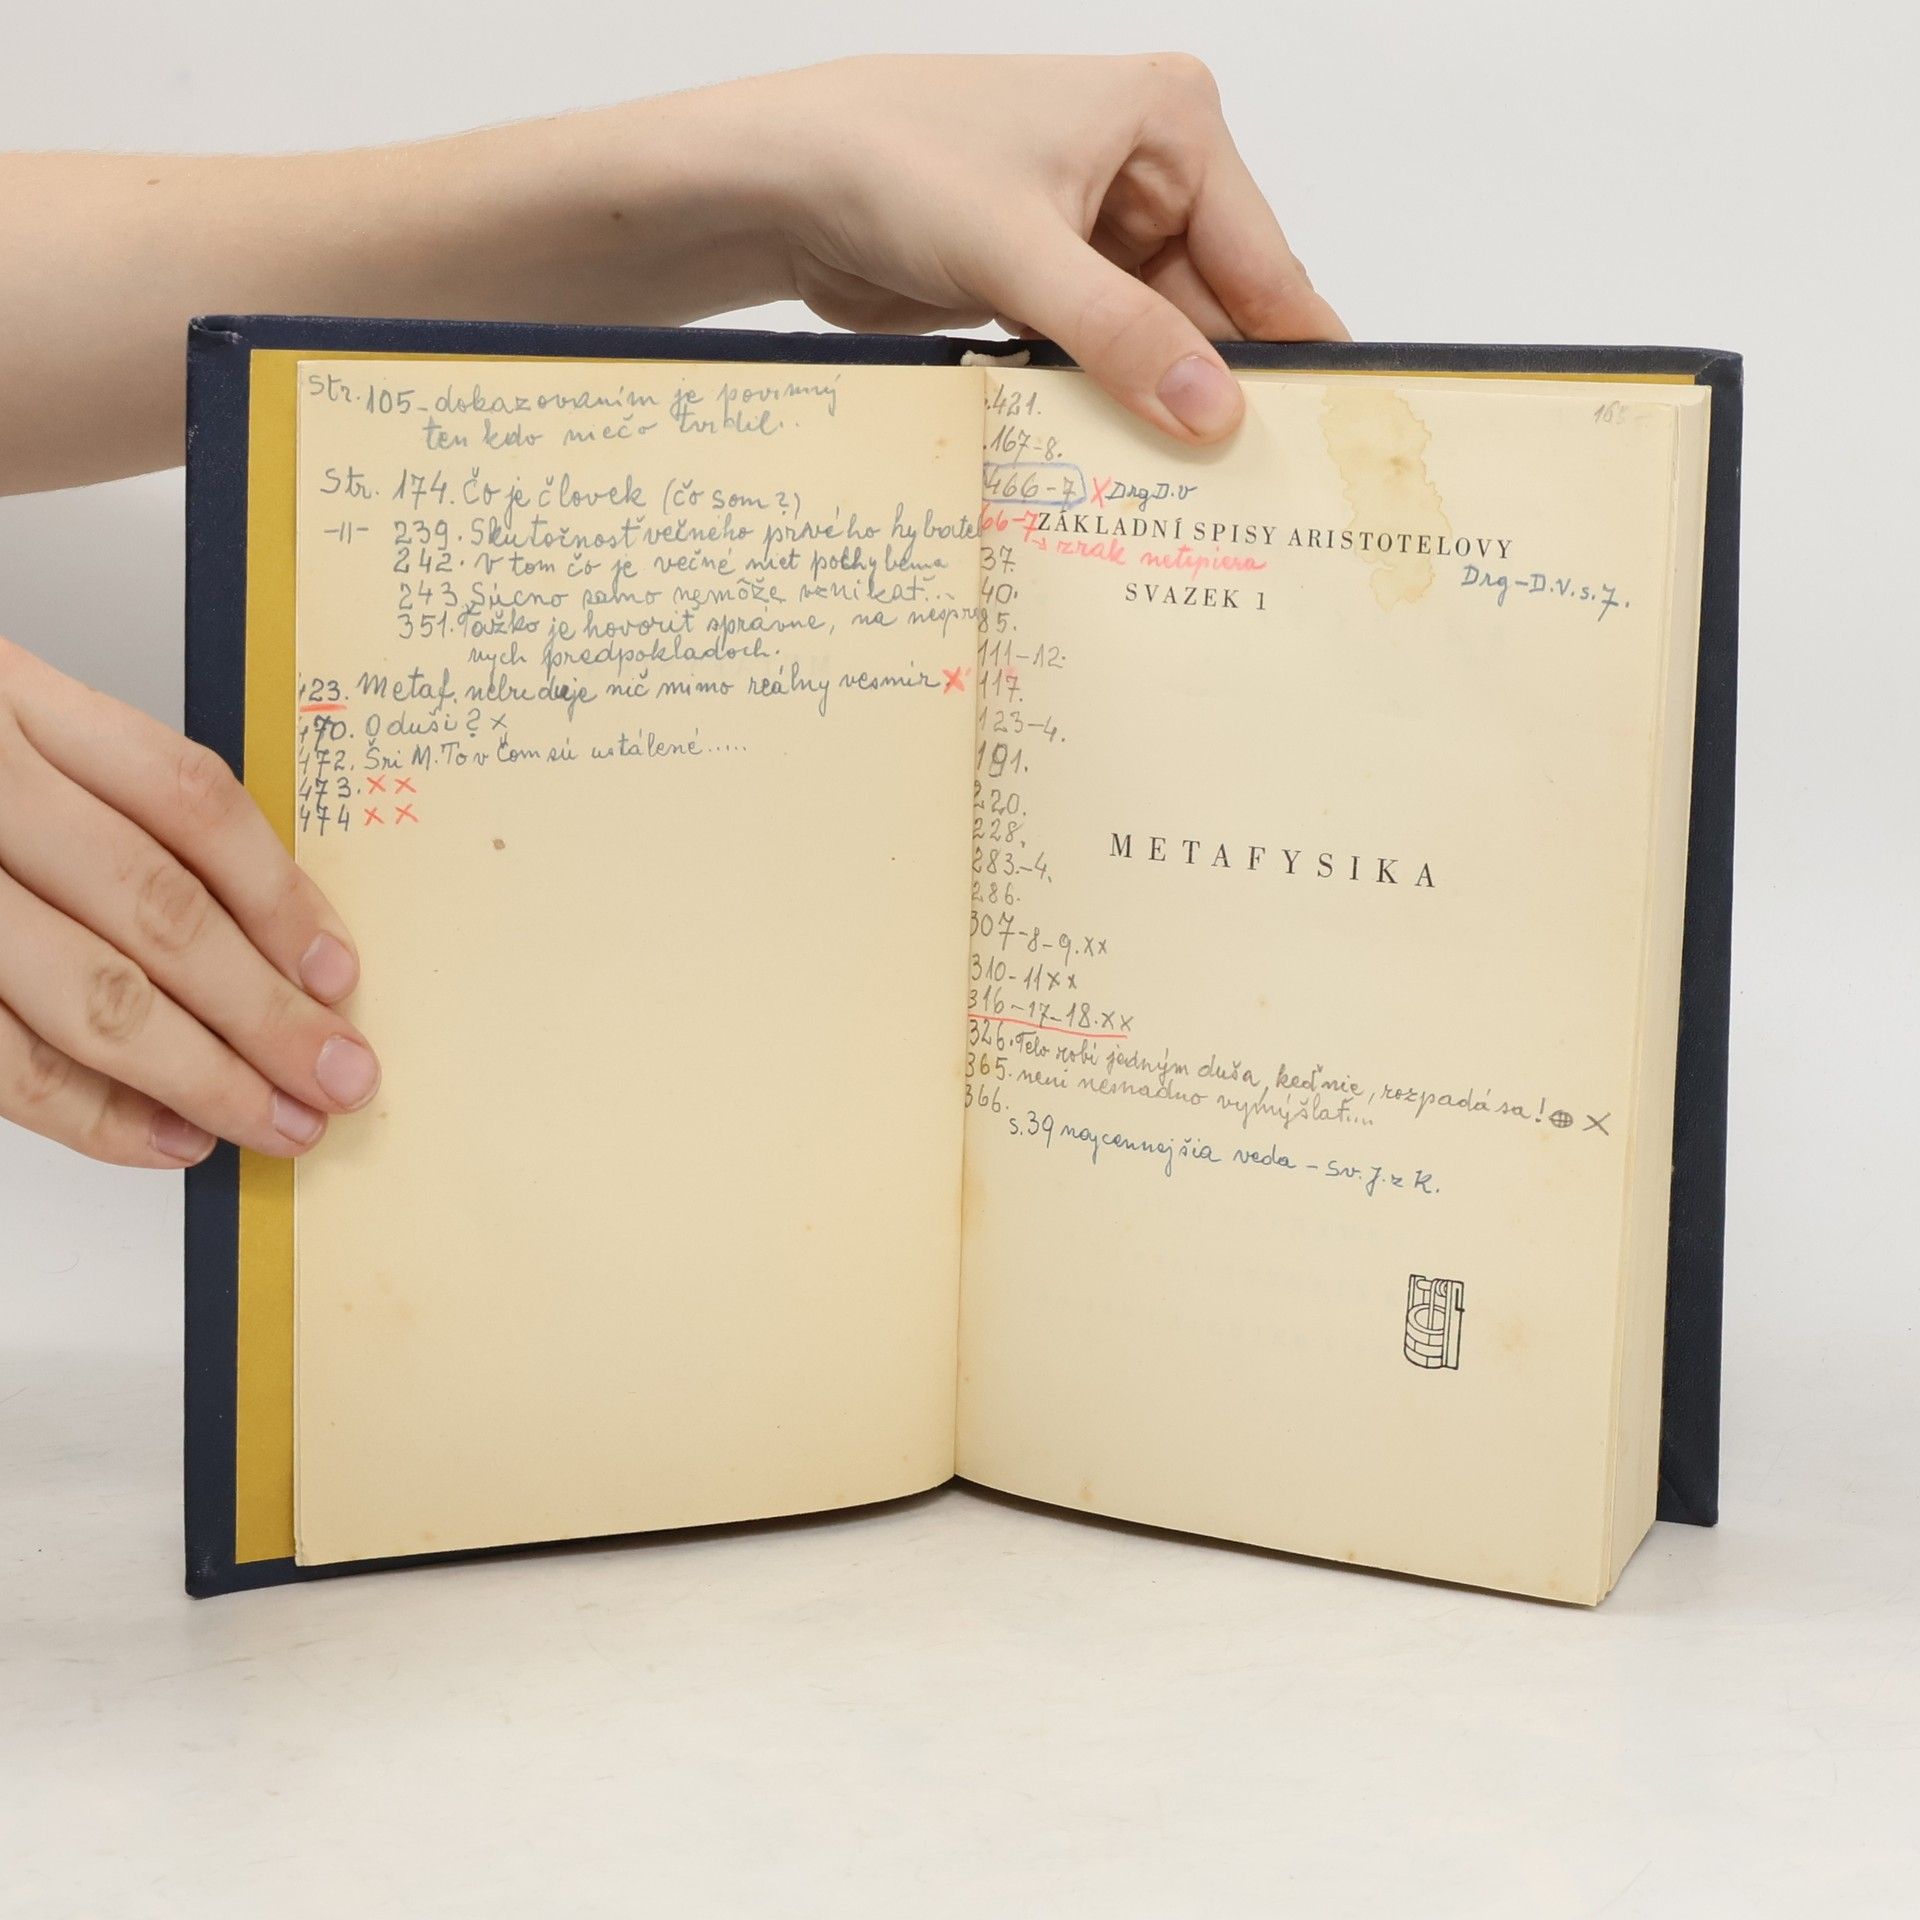 Str. 105 - dokazovaním je povinný
ten kdo niečo tvrdil..
Str. 174. Čo je človek (čo som?)
-11- 239. Skutočnosť večného prvého hybatel
242. v tom čo je večné niet pochybema
243. Súcno samo nemôže vznikať...
351. Ťažko je hovoriť správne, na nespr
nych predpokladoch.
423. Metaf. nebuduje nič mimo reálny vesmír X
470. O duši? x
472. Šri M. To v čom sú ustálené.....
473. x x
474 x x
421.
167-8.
466-7 X Drg D. v
66-7
ZÁKLADNÍ SPISY ARISTOTELOVY
zrak netopiera
Drg - D.V. s. 7.
SVAZEK 1
37.
40.
85.
111-12.
117.
123-4.
191.
220.
228.
283-4.
286.
307-8-9. xx
310-11 xx
316-17-18. xx
METAFYSIKA
326. Telo robí jedným duša, keď nie, rozpadá sa! X
365. neni nesnadno vymýšlať....
366.
s. 39 najcennejšia veda - sv. J. z K.